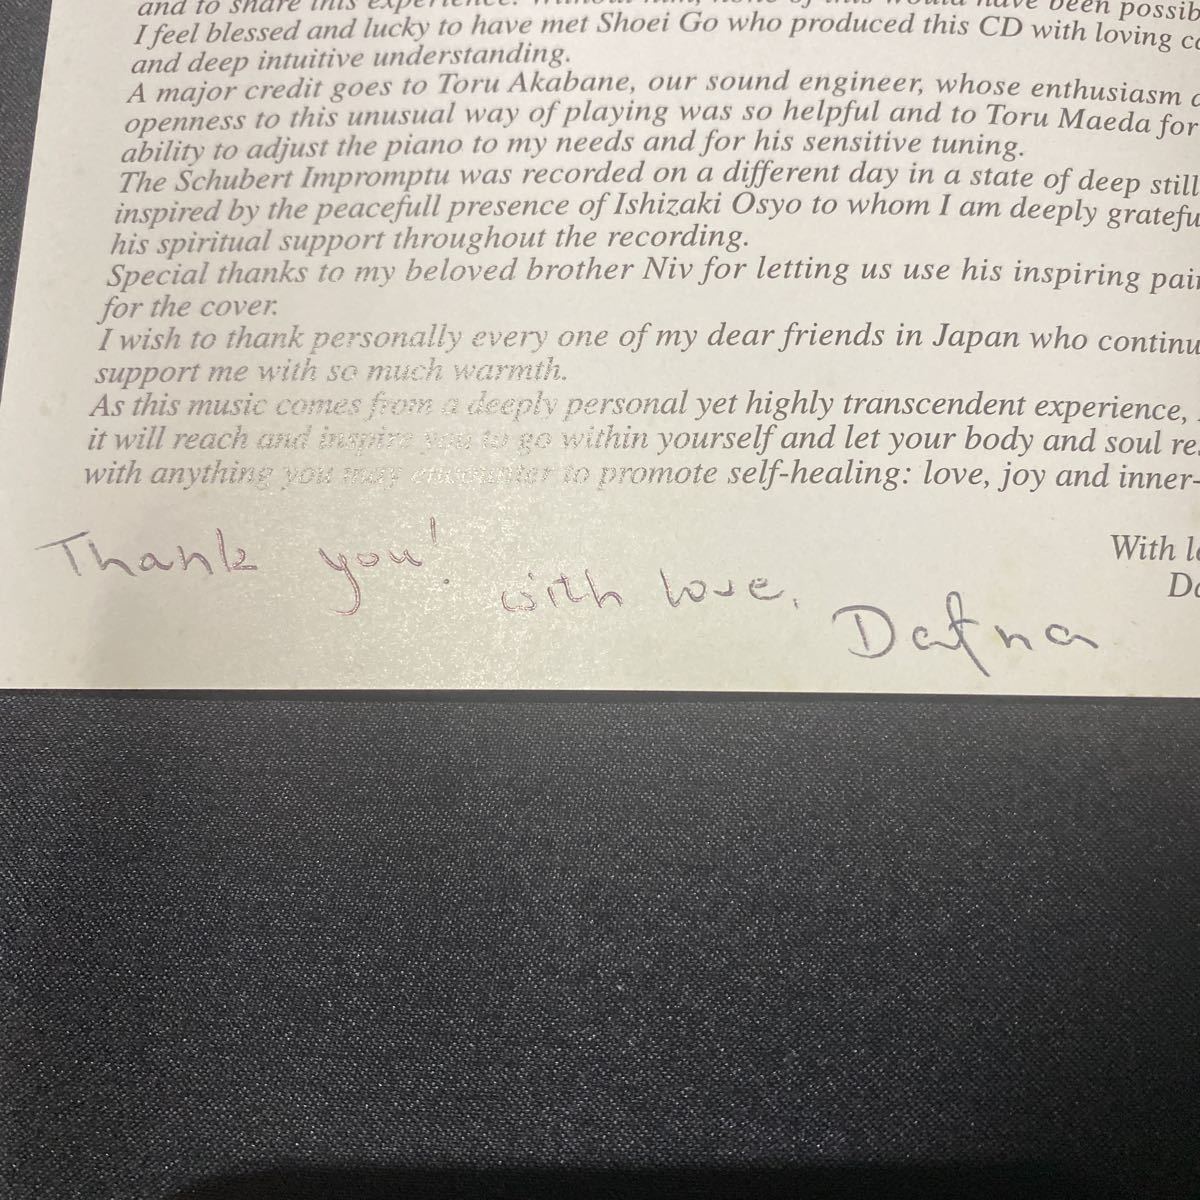 and to share this experience. Without him, none of this would have been possib
I feel blessed and lucky to have met Shoei Go who produced this CD with loving c
and deep intuitive understanding.
A major credit goes to Toru Akabane, our sound engineer, whose enthusiasm
openness to this unusual way of playing was so helpful and to Toru Maeda for
ability to adjust the piano to my needs and for his sensitive tuning.
The Schubert Impromptu was recorded on a different day in a state of deep still
inspired by the peacefull presence of Ishizaki Osyo to whom I am deeply gratefu
his spiritual support throughout the recording.
Special thanks to my beloved brother Niv for letting us use his inspiring pai
for the cover.
I wish to thank personally every one of my dear friends in Japan who continu
support me with so much warmth.
As this music comes from a deeply personal yet highly transcendent experience,
it will reach and inspire you to go within yourself and let your body and soul re
with anything you may encounter to promote self-healing: love, joy and inner-
With l
D
Thank you! with love,
Dafna